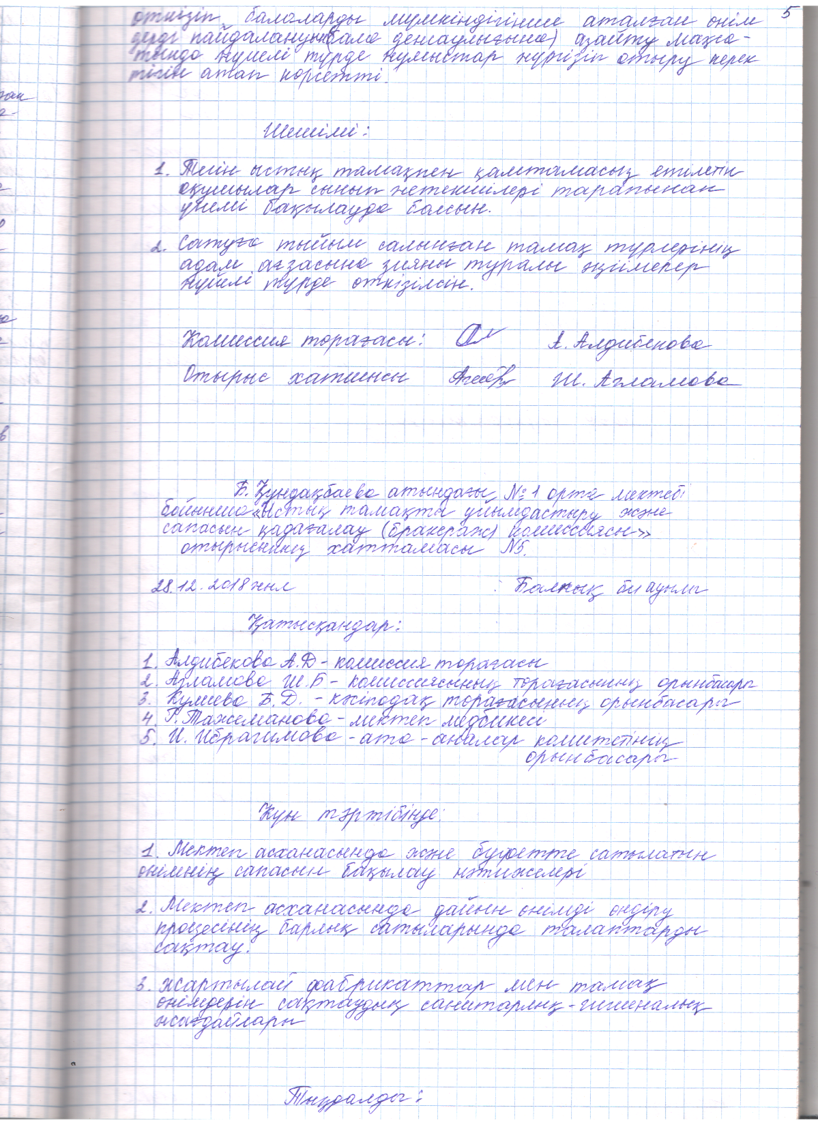 5
өткізіп, балаларды мүмкіндігінше аталған өнім
дерді пайдалануын(бала денсаулығына) азайту мақса-
тында жүйелі түрде жұмыстар жүргізіп отыру керек
тігін атап көрсетті.
Шешімі:
1. Тегін ыстық тамақпен қамтамасыз етілетін
оқушылар сынып жетекшілері тарапынан
үнемі бақылауда болсын.
2. Сатуға тыйым салынған тамақ түрлерінің
адам ағзасына зияны туралы әңгімелер
жүйелі түрде өткізілсін.
Комиссия торағасы: А. Алдибекова
Отырыс хатшысы Ш. Агламова
Б. Құндақбаева атындағы №1 орта мектебі
бойынша «Ыстық тамақты ұйымдастыру және
сапасын қадағалау (бракераж) комиссиясы»
отырысының хаттамасы №5.
28.12.2018жыл Балпық би ауылы
Қатысқандар:
1. Алдибекова А.Д - комиссия торағасы
2. Агламова Ш.Б - комиссиясының торағасының орынбасары
3. Кумиева Б.Д. - кәсіподақ торағасының орынбасары
4. Г. Тажеманова - мектеп медбикесі
5. И. Ибрагимова - ата - аналар комитетінің
орынбасары
Күн тәртібінде:
1. Мектеп асханасында және буфетте сатылатын
өнімнің сапасын бақылау нәтижелері
2. Мектеп асханасында дайын өнімді өндіру
процесінің барлық сатыларында талаптарды
сақтау.
3. Жартылай фабрикаттар мен тамақ
өнімдерін сақтаудың санитарлық-гигиеналық
жағдайлары
Тыңдалды: